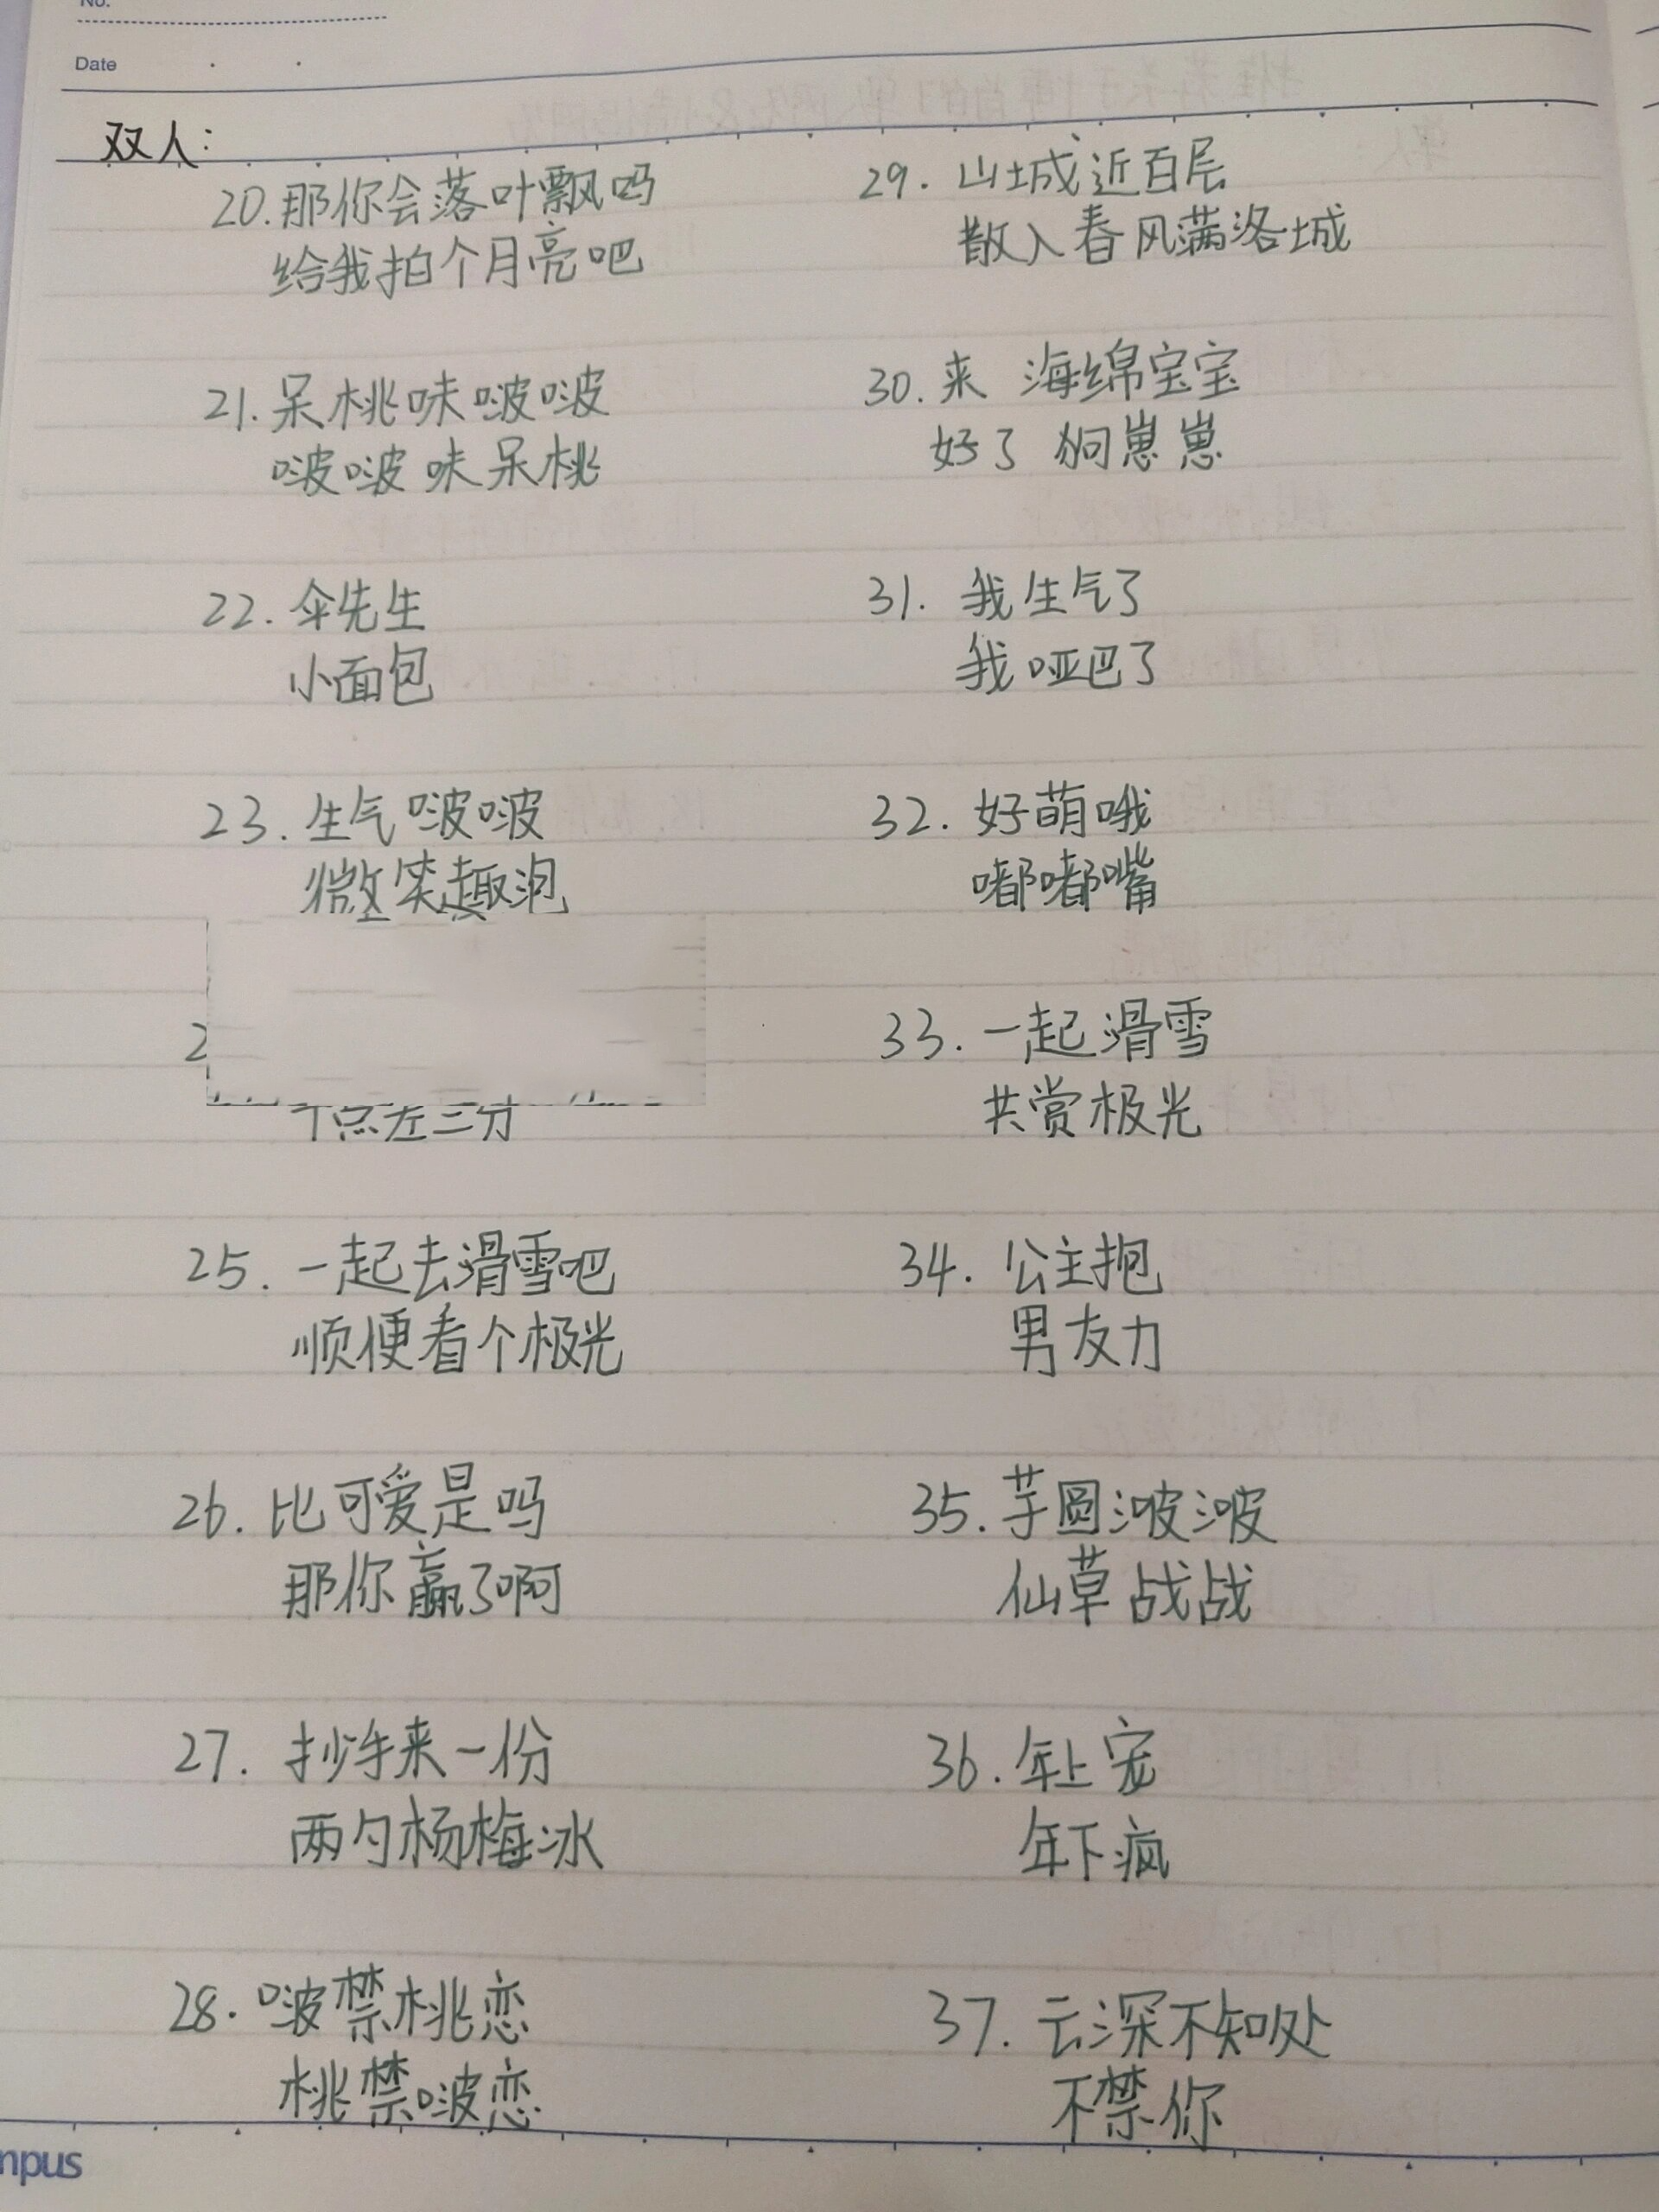 No.
Date
双人:
20.那你会落叶飘吗
给我拍个月亮吧
21.呆桃味啵啵
啵啵味呆桃
22.伞先生
小面包
23.生气啵啵
微笑趣泡
2
25.一起去滑雪吧
顺便看个极光
26.比可爱是吗
那你赢了啊
27.抄手来一份
两勺杨梅冰
28.啵禁桃恋
桃禁啵恋
29.山城近百层
散入春风满洛城
30.来 海绵宝宝
好了 狗崽崽
31.我生气了
我哑巴了
32.好萌哦
嘟嘟嘴
33.一起滑雪
共赏极光
34.公主抱
男友力
35.芋圆啵啵
仙草战战
36.年上宠
年下疯
37.云深不知处
不禁你
mpus